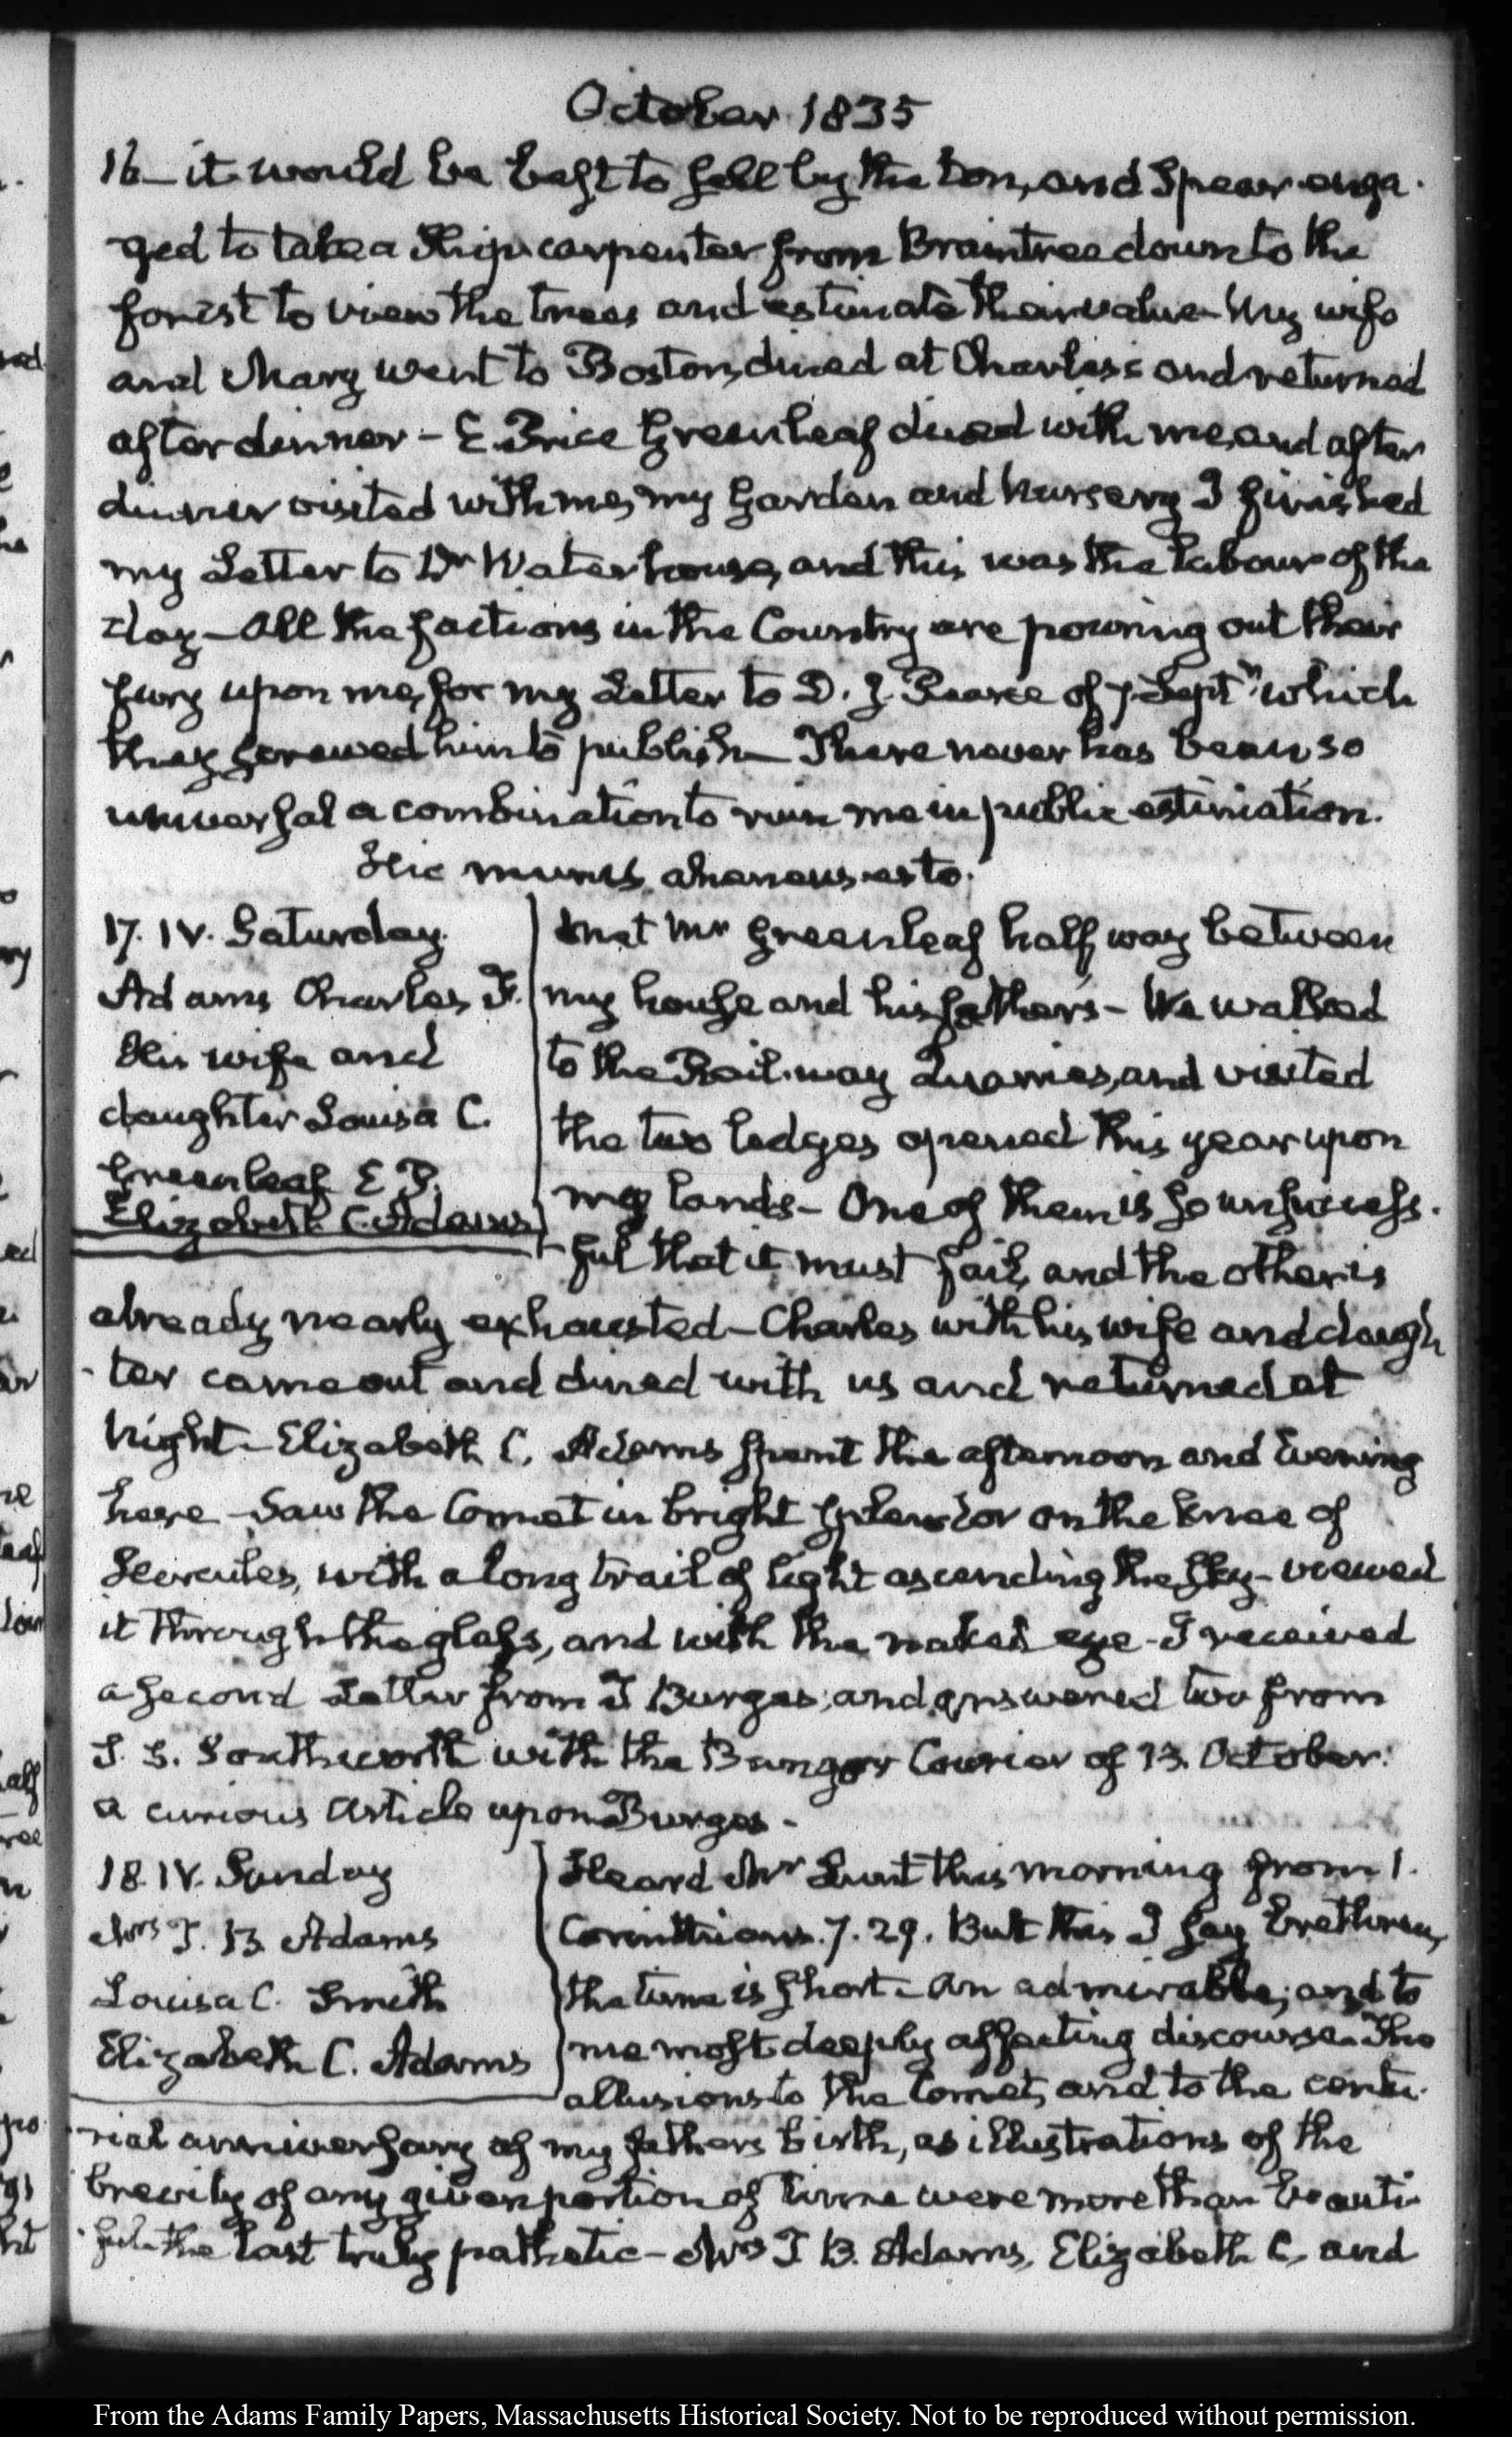 October 1835
16— it would be best to sell by the ton, and Spear enga-
ged to take a Ship carpenter from Braintree down to the
forest to view the trees and estimate their value— My wife
and Mary went to Boston, dined at Charles's and returned
after dinner— E Price Greenleaf dined with me, and after
dinner visited with me, my Garden and Nursery I finished
my Letter to Dr Waterhouse, and this was the labour of the
day— All the factions in the Country are pouring out their
fury upon me, for my Letter to D. J. Pearce of 7. Septr which
they screwed him to publish— There never has been so
universal a combination to ruin me in public estimation.
Hic murus aheneus esto.
17. IV. Saturday.
Adams Charles F.
His wife and
daughter Louisa C.
Greenleaf E P.
Elizabeth C. Adams
met Mr Greenleaf half way between
my house and his father's— We walked
to the Rail-way Quarries, and visited
the two ledges opened this year upon
my lands— One of them is so unsuccess-
ful that it must fail, and the other is
already nearly exhausted— Charles with his wife and daugh
-ter came out and dined with us and returned at
Night— Elizabeth C. Adams spent the afternoon and Evening
here— Saw the Comet in bright splendor on the knee of
Hercules, with a long trail of light ascending the sky— viewed
it through the glass, and with the naked eye— I received
a second Letter from T Burges; and answered two from
S. S. Southworth with the Bangor Courier of 13. October:
a curious Article upon Burges—
18. IV. Sunday
Mrs T. B. Adams
Louisa C. Smith
Elizabeth C. Adams
Heard Mr Lunt this morning from 1.
Corinthians. 7. 29. But this I say Brethren,
the time is short— An admirable; and to
me most deeply affecting discourse— The
allusions to the Comet, and to the cente-
-rial anniversary of my father's birth, as illustrations of the
brevity of any given portion of Time were more than beauti-
-ful— the last truly pathetic— Mrs T B. Adams, Elizabeth C. and
From the Adams Family Papers, Massachusetts Historical Society. Not to be reproduced without permission.